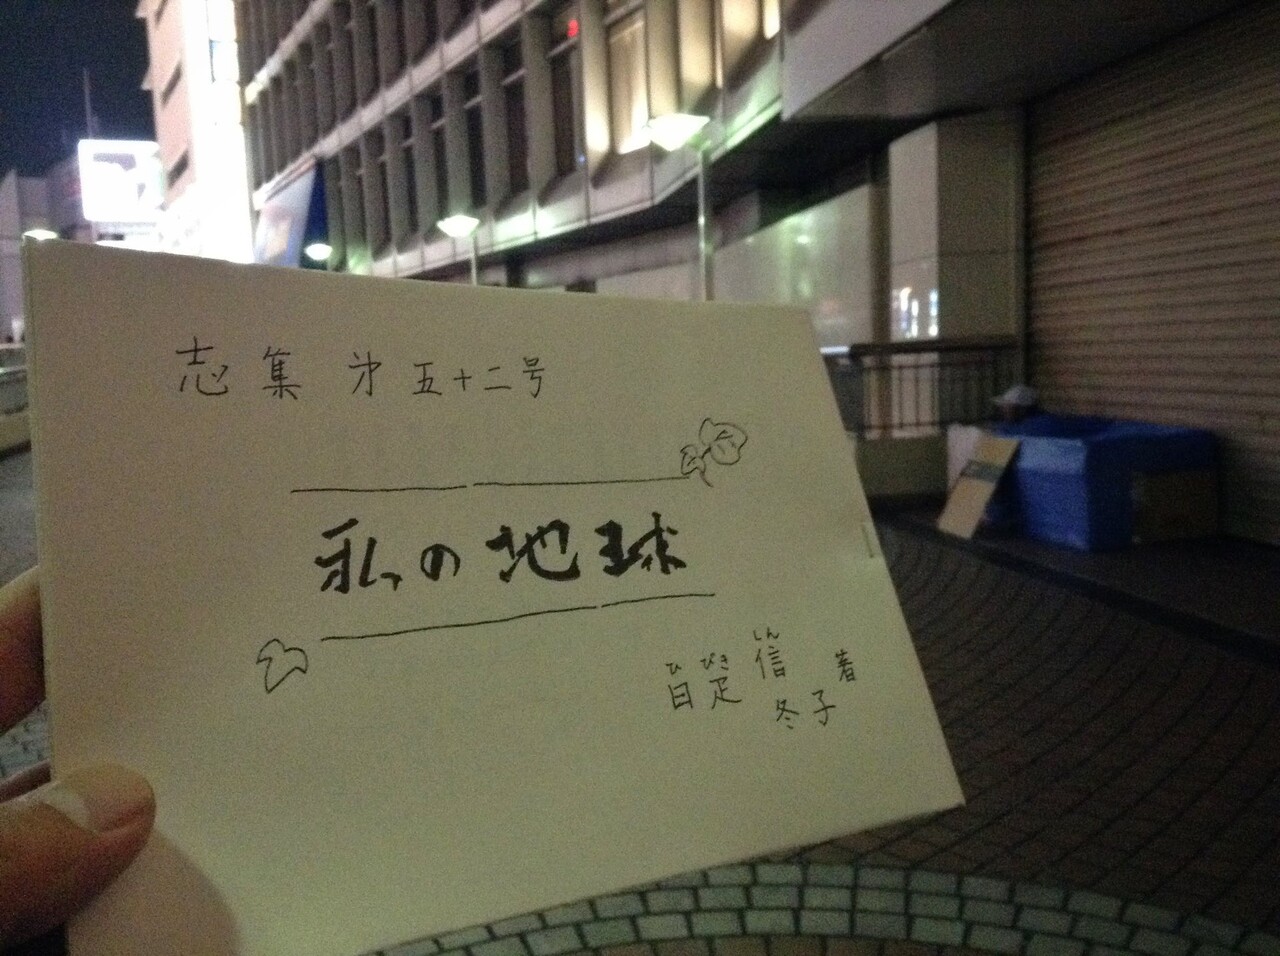 志集 㐧五十二号
私の地球
ひびき しん
日疋 信 著
冬子